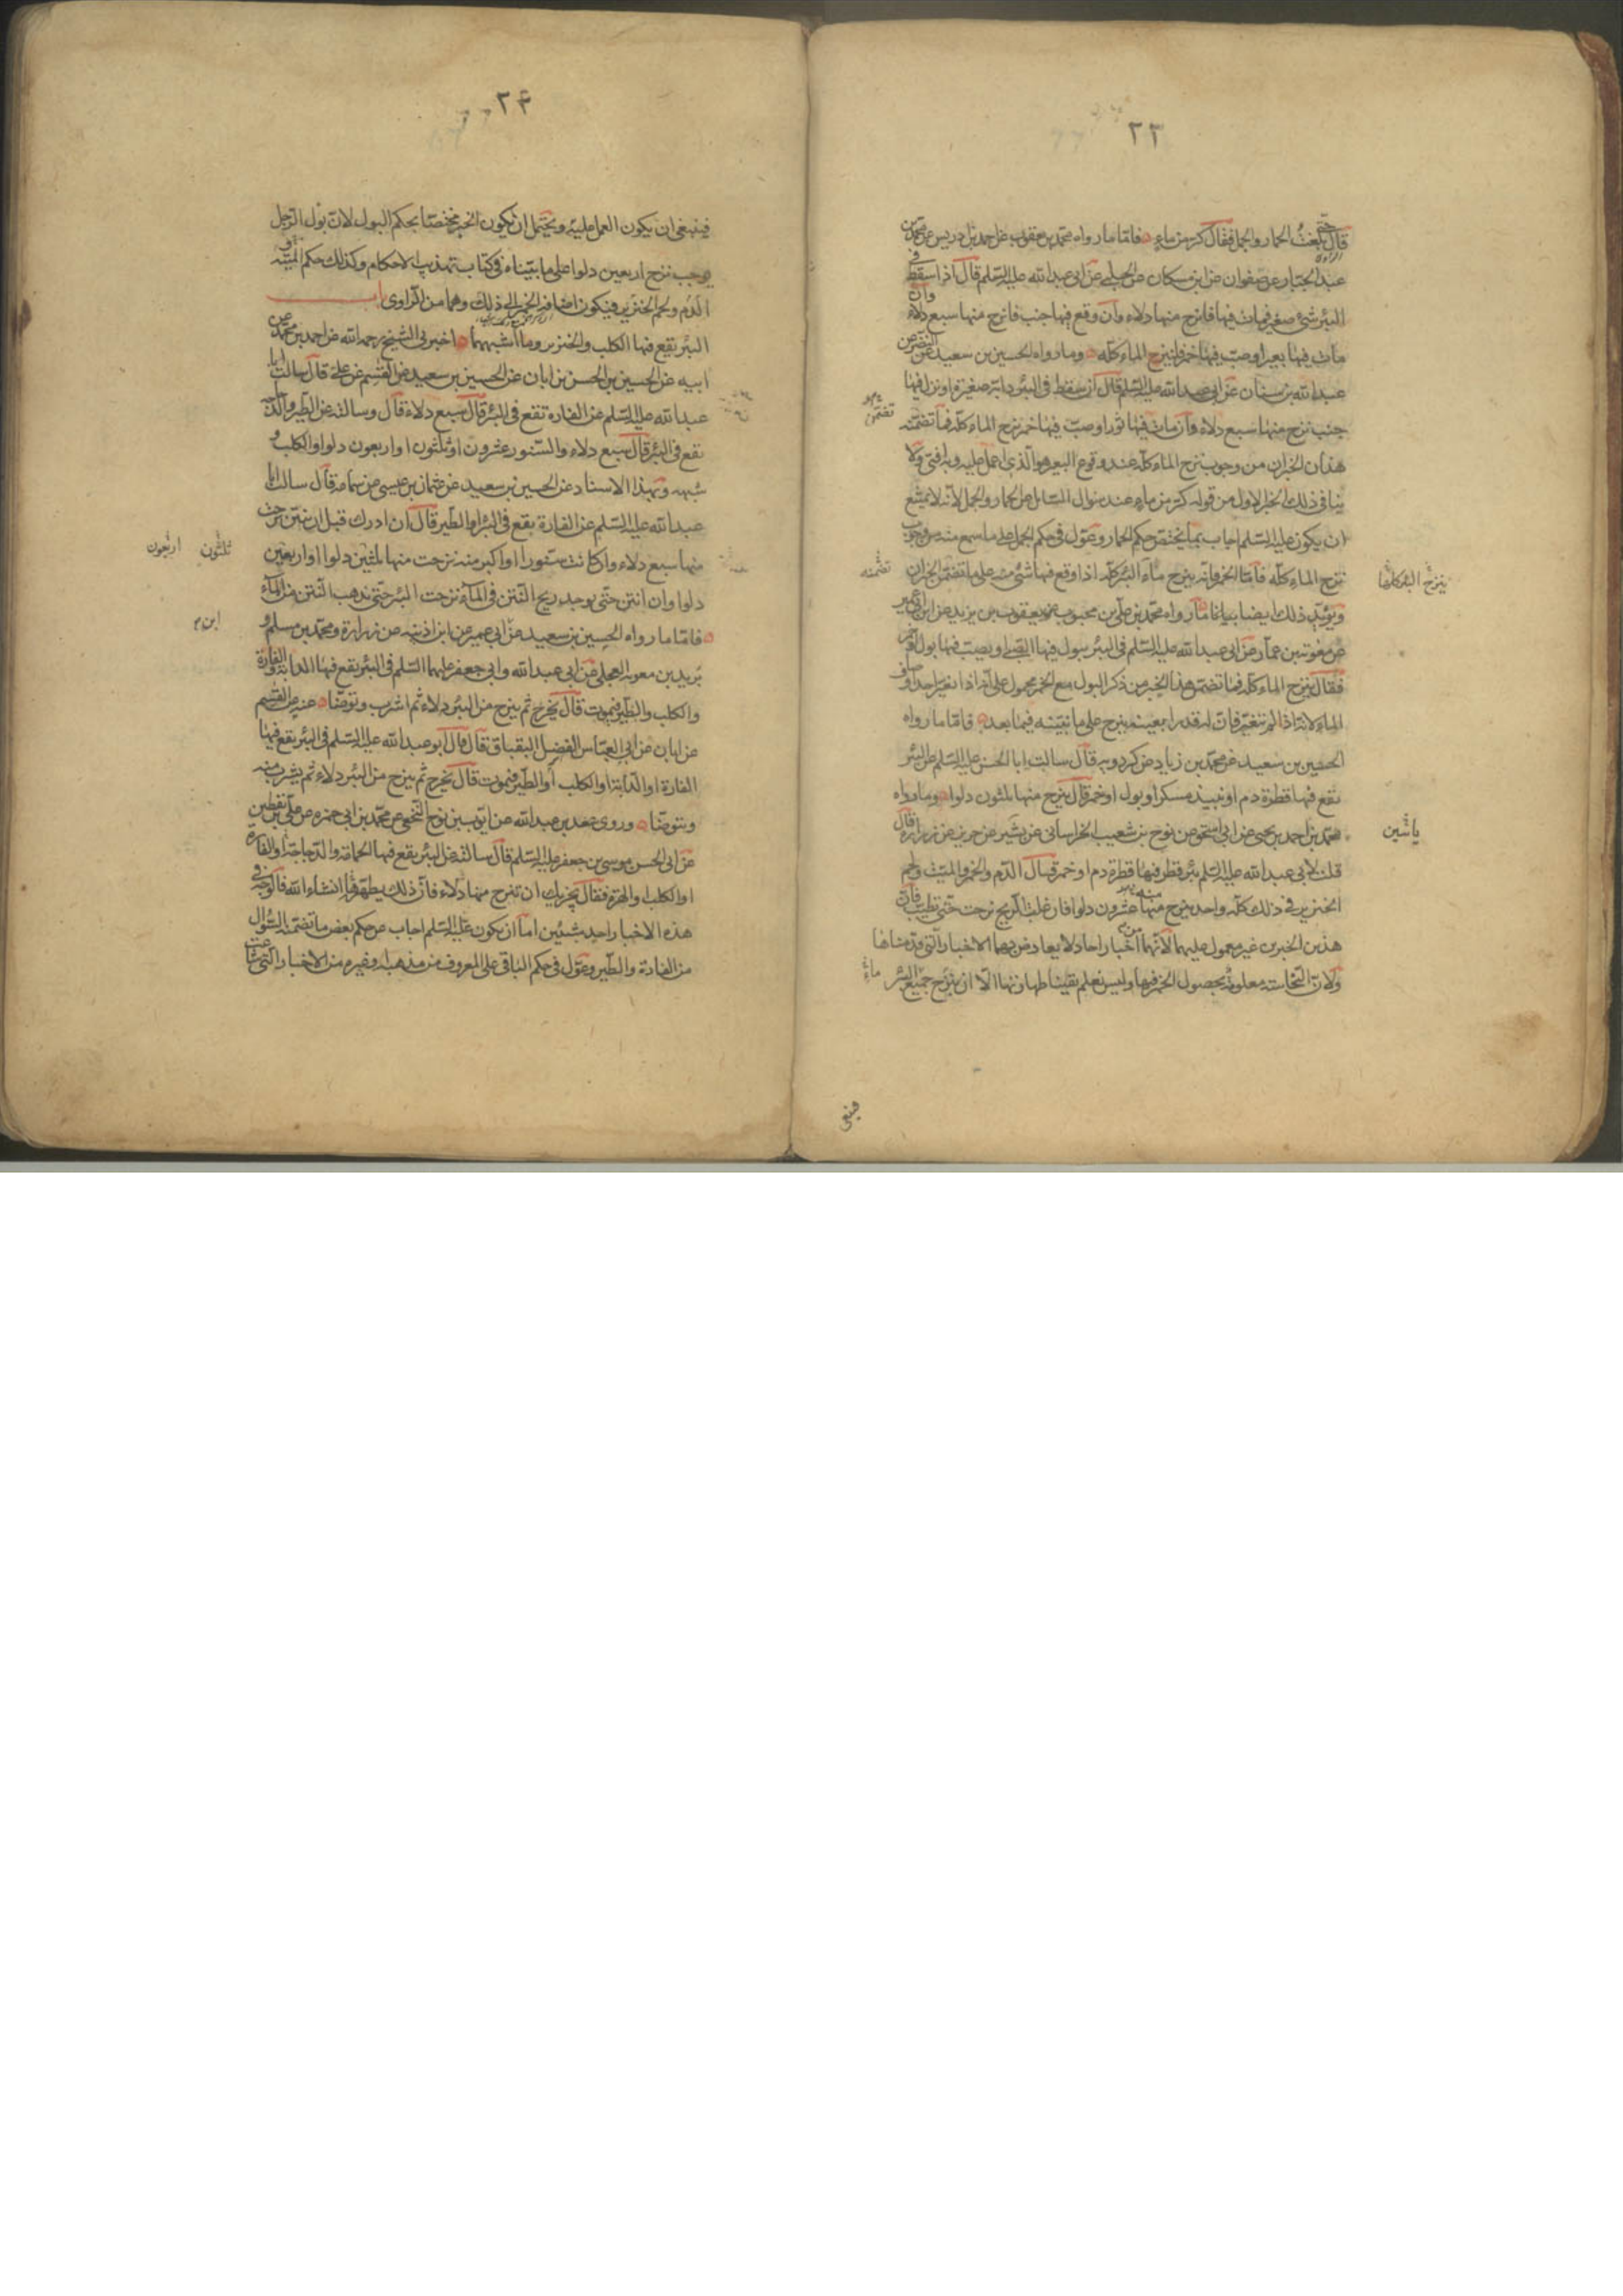 ٢٣
قال حتى بلغت الحمار والجمل فقال كر من ماء فاما ما رواه محمد بن يعقوب عن احمد بن ادريس عن محمد بن
عبد الجبار عن صفوان عن ابن مسكان عن الحلبي عن ابى عبد الله عليه السلم قال اذا سقط فى
البئر شئ صغير فمات فيها فانزح منها دلاء وان وقع فيها جنب فانزح منها سبع دلاء وان
مات فيها بعير او صب فيها خمر فلينزح الماء كله وما رواه الحسين بن سعيد عن النضر عن
عبد الله بن سنان عن ابى عبد الله عليه السلم قال ان سقط فى البئر دابة صغيرة او نزل فيها
جنب نزح منها سبع دلاء وان مات فيها ثور او صب فيها خمر نزح الماء كله فما تضمنه
تضمن
هذان الخبران من وجوب نزح الماء كله عند وقوع البعير هو الذى اعمل عليه وبه افتى ولا
ينافى ذلك الخبر الاول من قوله كر من ماء عند سوال السائل عن الحمار والجمل لانه لا يمتنع
ان يكون عليه السلم اجاب بما يختص حكم الحمار وعول فى حكم الجمل على ما سمع منه من وجوب
نزح الماء كله فاما الخمر فانه ينزح ماء البئر كله اذا وقع فيها شئ منه على ما تضمن الخبران
ينزح البئر كلها
تضمنه
ويؤيد ذلك ايضا بيانا ما رواه محمد بن على بن محبوب عن يعقوب بن يزيد عن ابن ابى عمير
عن معوية بن عمار عن ابى عبد الله عليه السلم فى البئر يبول فيها الصبى او يصب فيها بول او خمر
فقال ينزح الماء كله فما تضمن هذا الخبر من ذكر البول مع الخمر محمول على انه اذا تغير احد اوصاف
الماء لانه اذا لم يتغير فان له قدرا بعينه ينزح على ما نبينه فيما بعد فاما ما رواه
الحسين بن سعيد عن محمد بن زياد عن كردويه قال سالت ابا الحسن عليه السلم عن البئر
تقع فيها قطرة دم او نبيذ مسكر او بول او خمر قال ينزح منها ثلثون دلوا وما رواه
محمد بن احمد بن يحيى عن ابى اسحق عن نوح بن شعيب الخراسانى عن بشير عن حريز عن زرارة قال
ياسين
قلت لابى عبد الله عليه السلم بئر قطر فيها قطرة دم او خمر قال الدم والخمر والميت ولحم
الخنزير فى ذلك كله واحد ينزح منها عشرون دلوا فان غلب الريح نزحت حتى تطيب فان
هذين الخبرين غير معمول عليهما لانهما من اخبار احاد لا يعارض بهما الاخبار التى قدمناها
ولان النجاسة معلومة بحصول الخمر فيها وليس نعلم يقينا طهارتها الا ان ينزح جميع البئر
ماء
فينبغى
٢۴
فينبغى ان يكون العمل عليه ويحتمل ان يكون الخبر مختصا بحكم البول لان بول الرجل
يوجب نزح اربعين دلوا على ما بيناه فى كتاب تهذيب الاحكام وكذلك حكم الميتة و
الدم ولحم الخنزير فيكون اضافة الخمر الى ذلك وهما من الراوى باب
البئر تقع فيها الكلب والخنزير وما اشبههما اخبرنى الشيخ رحمه الله عن احمد بن محمد عن
ابيه عن الحسين بن الحسن بن ابان عن الحسين بن سعيد عن القسم عن على قال سالت ابا
عبد الله عليه السلم عن الفارة تقع فى البئر قال سبع دلاء قال وسالته عن الطير والدجاجة
تقع فى البئر قال سبع دلاء والسنور عشرون او ثلثون او اربعون دلوا والكلب و
شبهه وبهذا الاسناد عن الحسين بن سعيد عن عثمان بن عيسى عن سماعة قال سالت ابا
عبد الله عليه السلم عن الفارة يقع فى البئر او الطير قال ان ادرك قبل ان ينتن نزحت
منها سبع دلاء وان كانت سنورا او اكبر منه نزحت منها ثلثين دلوا او اربعين
ثلثون اربعون
دلوا وان انتن حتى يوجد ريح النتن فى الماء نزحت البئر حتى تذهب النتن من الماء
فاما ما رواه الحسين بن سعيد عن ابى عمير عن ابن اذينة عن زرارة ومحمد بن مسلم و
ابن
بريد بن معوية العجلى عن ابى عبد الله وابى جعفر عليهما السلم فى البئر يقع فيها الدابة والفارة
والكلب والطير فيموت قال يخرج ثم ينزح من البئر دلاء ثم اشرب وتوضا عنه عن القسم
عن ابان عن ابى العباس الفضل البقباق قال قال ابو عبد الله عليه السلم فى البئر يقع فيها
الفارة او الدابة او الكلب او الطير فيموت قال يخرج ثم ينزح من البئر دلاء ثم يشرب منه
ويتوضا وروى سعد بن عبد الله عن ايوب بن نوح النخعى عن محمد بن ابى حمزه عن على بن يقطين
عن ابى الحسن موسى بن جعفر عليه السلم قال سالته عن البئر يقع فيها الحمامة والدجاجة او الفاره
او الكلب او الهرة فقال يجزيك ان تنزح منها دلاء فان ذلك يطهرها انشاء الله فالوجه فى
هذه الاخبار احد شيئين اما ان يكون عليه السلم اجاب عن حكم بعض ما تضمنه السؤال
من الفارة والطير وعول فى حكم الباقى على المعروف من مذهبه او غيره من الاخبار التى شاعت